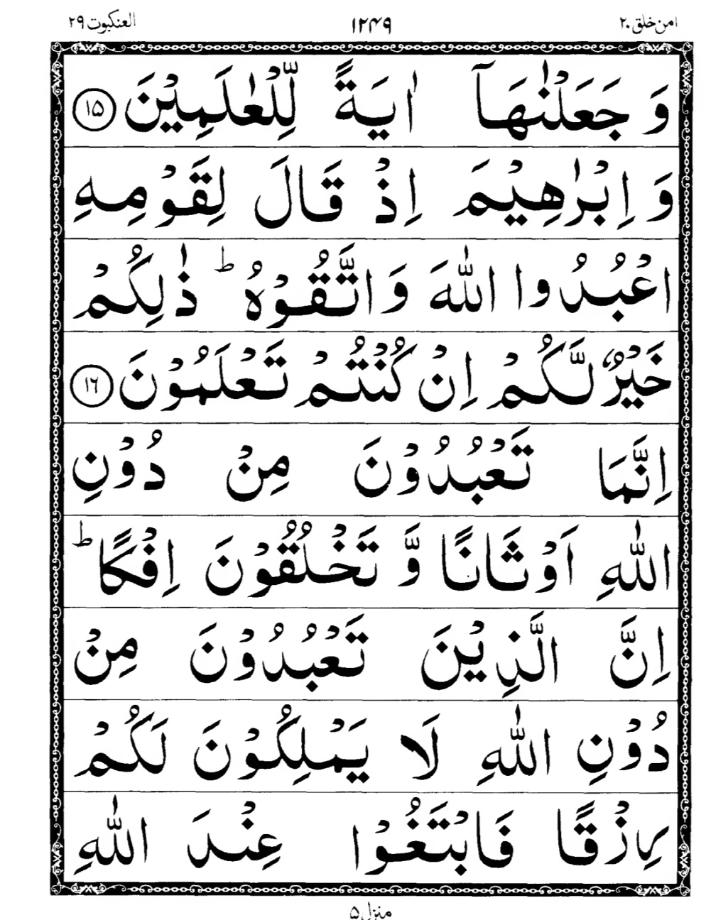 امن خلق ۲۰ ۱۲۴۹ العنکبوت ۲۹
وَ جَعَلْنٰهَاۤ اٰيَةً لِّلْعٰلَمِيْنَ ۱۵
وَ اِبْرٰهِيْمَ اِذْ قَالَ لِقَوْمِهِ
اعْبُدُوا اللّٰهَ وَ اتَّقُوْهُ ؕ ذٰلِكُمْ
خَيْرٌ لَّكُمْ اِنْ كُنْتُمْ تَعْلَمُوْنَ ۱۶
اِنَّمَا تَعْبُدُوْنَ مِنْ دُوْنِ
اللّٰهِ اَوْثَانًا وَّ تَخْلُقُوْنَ اِفْكًا ؕ
اِنَّ الَّذِيْنَ تَعْبُدُوْنَ مِنْ
دُوْنِ اللّٰهِ لَا يَمْلِكُوْنَ لَكُمْ
رِزْقًا فَابْتَغُوْا عِنْدَ اللّٰهِ
منزل ۵